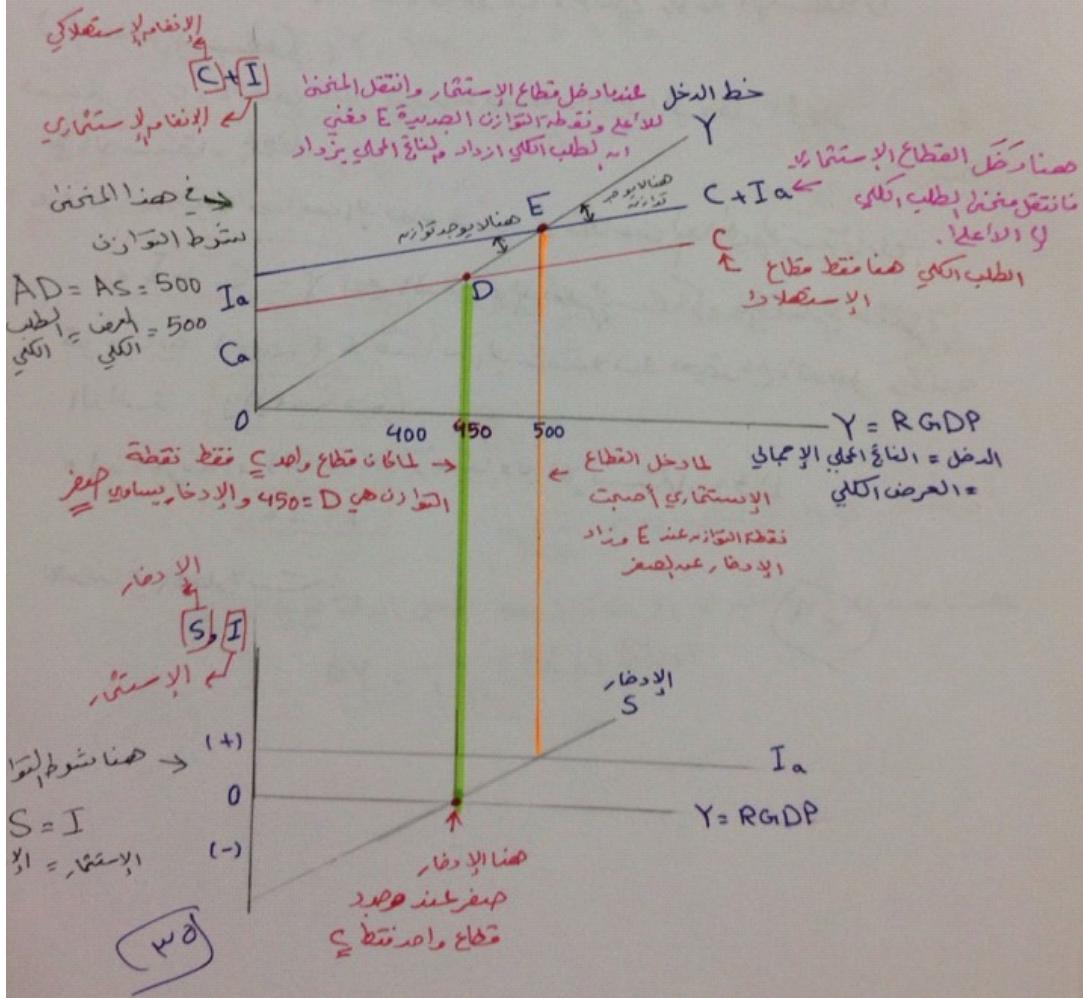 الإنفاق الإستهلاكي
C + I
الإنفاق الإستثماري
خط الدخل
عندما دخل قطاع الإستثمار وانتقل المنحنى
للأعلى ونقطة التوازن الجديدة E دغني
انه الطلب الكلي ازداد والناتج المحلي يزداد
Y
هنا لا يوجد
توازن
هنا لا يوجد توازن
E
C + Ia
هنا دخل القطاع الإستثماري
فانتقل منحنى الطلب الكلي
الى الأعلى.
C
الطلب الكلي هنا فقط قطاع
الإستهلاك
في هذا المنحنى
شرط التوازن
AD = AS = 500
الطلب الكلي = العرض الكلي = 500
Ia
D
Ca
0
400 450 500
Y = RGDP
الدخل = الناتج المحلي الإجمالي
= العرض الكلي
لما كان قطاع واحد C فقط نقطة
التوازن هي D = 450 والإدخار يساوي صفر
لما دخل القطاع
الإستثماري أصبحت
نقطة التوازن عند E وزاد
الإدخار عن الصفر
الإدخار
S, I
الإستثمار
الإدخار
S
(+)
هنا شرط التوا
Ia
0
Y = RGDP
S = I
الإستثمار = الإ
(-)
هنا الإدخار
صفر عند وجود
قطاع واحد فقط C
٣٥